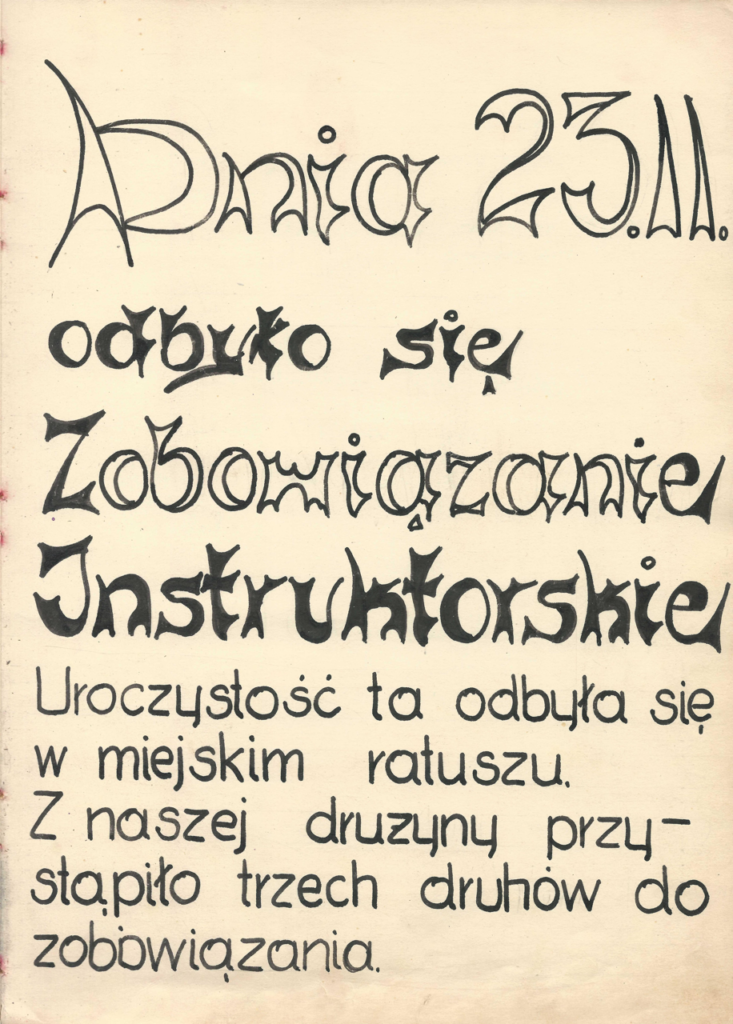 Dnia 23.II.
odbyło się
Zobowiązanie
Instruktorskie
Uroczystość ta odbyła się
w miejskim ratuszu.
Z naszej druzyny przy-
stąpiło trzech druhów do
zobowiązania.